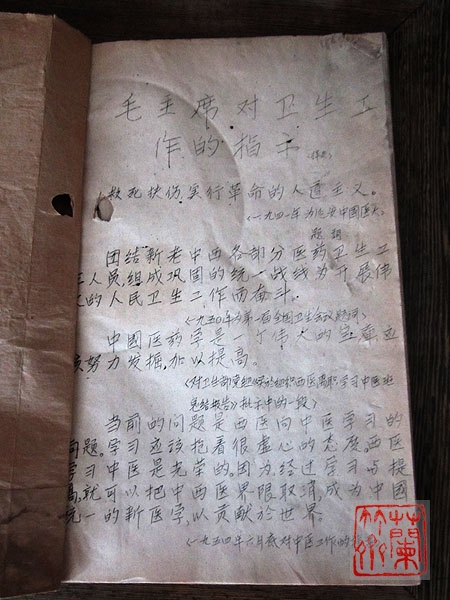 毛主席对卫生工
作的指示
救死扶伤实行革命的人道主义。
(一九四一年为延安中国医大
题词
团结新老中西各部分医药卫生工
人员,组成巩固的统一战线为开展伟
的人民卫生工作而奋斗。
(一九五〇年为第一届全国卫生会议题词)
中国医药学是一个伟大的宝库应
努力发掘,加以提高。
《对卫生部党组关于组织西医离职学习中医班
总结报告》批示中的一段)
当前的问题是西医向中医学习的
问题。学习应该抱着很虚心的态度。西医
学习中医是光荣的。因为经过学习与提
高,就可以把中西医界限取消,成为中国
统一的新医学,以贡献於世界。
(一九五四年六月 对中医工作的
蘭